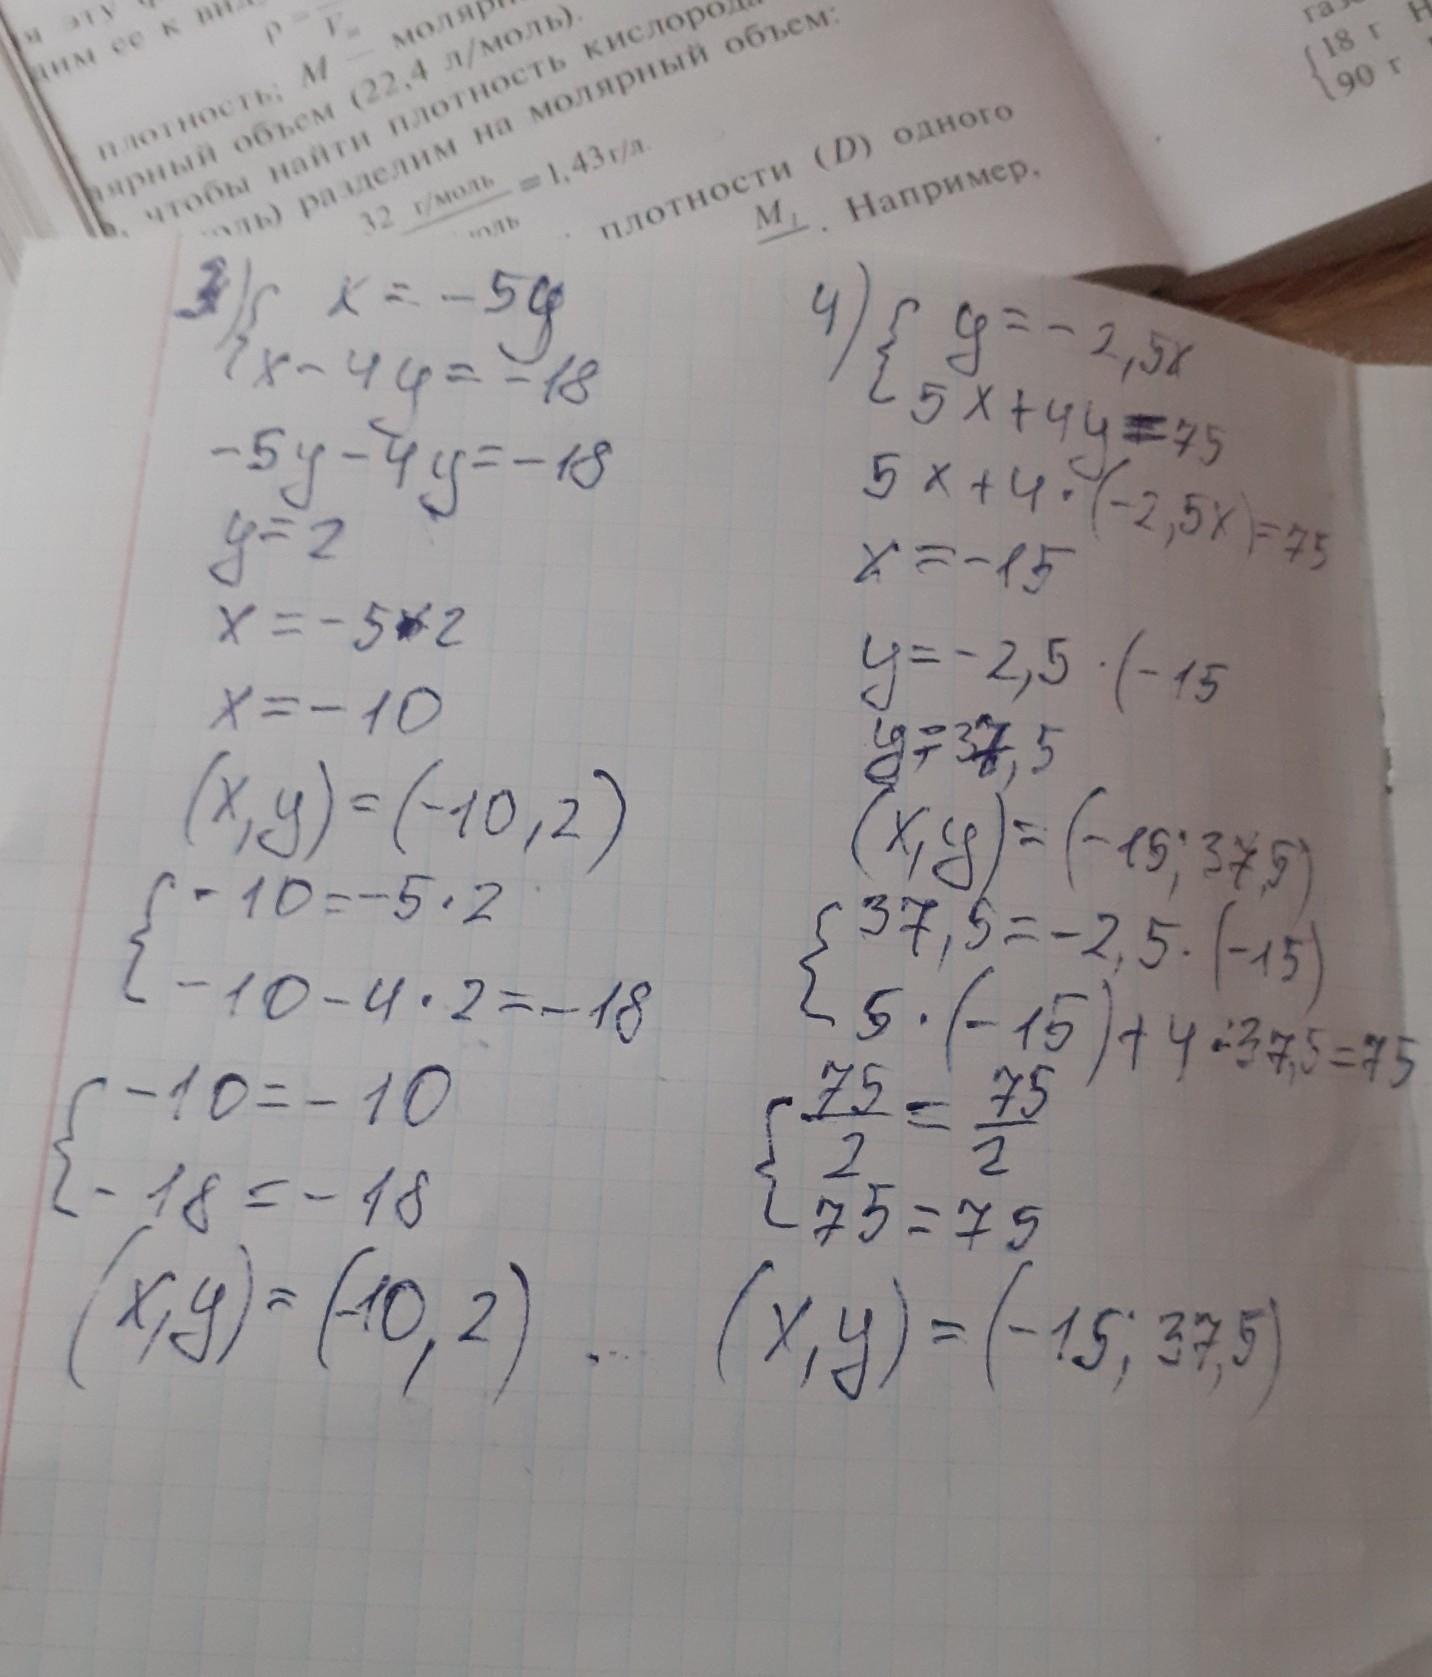 дим ее к вид
ρ =
плотность; M — моляр
ярный объем (22,4 л/моль).
чтобы найти плотность кислорода
разделим на молярный объем:
32 г/моль = 1,43 г/л.
плотности (D) одного
M₁ . Например,
18 г
90 г
3) { x = -5y
x - 4y = -18
-5y - 4y = -18
y = 2
x = -5 · 2
x = -10
(x,y) = (-10, 2)
{ -10 = -5 · 2
-10 - 4 · 2 = -18
{ -10 = -10
-18 = -18
(x,y) = (-10, 2)
4) { y = -2,5x
5x + 4y = 75
5x + 4 · (-2,5x) = 75
x = -15
y = -2,5 · (-15
y = 37,5
(x,y) = (-15; 37,5)
{ 37,5 = -2,5 · (-15)
5 · (-15) + 4 · 37,5 = 75
{ 75/2 = 75/2
75 = 75
(x,y) = (-15; 37,5)